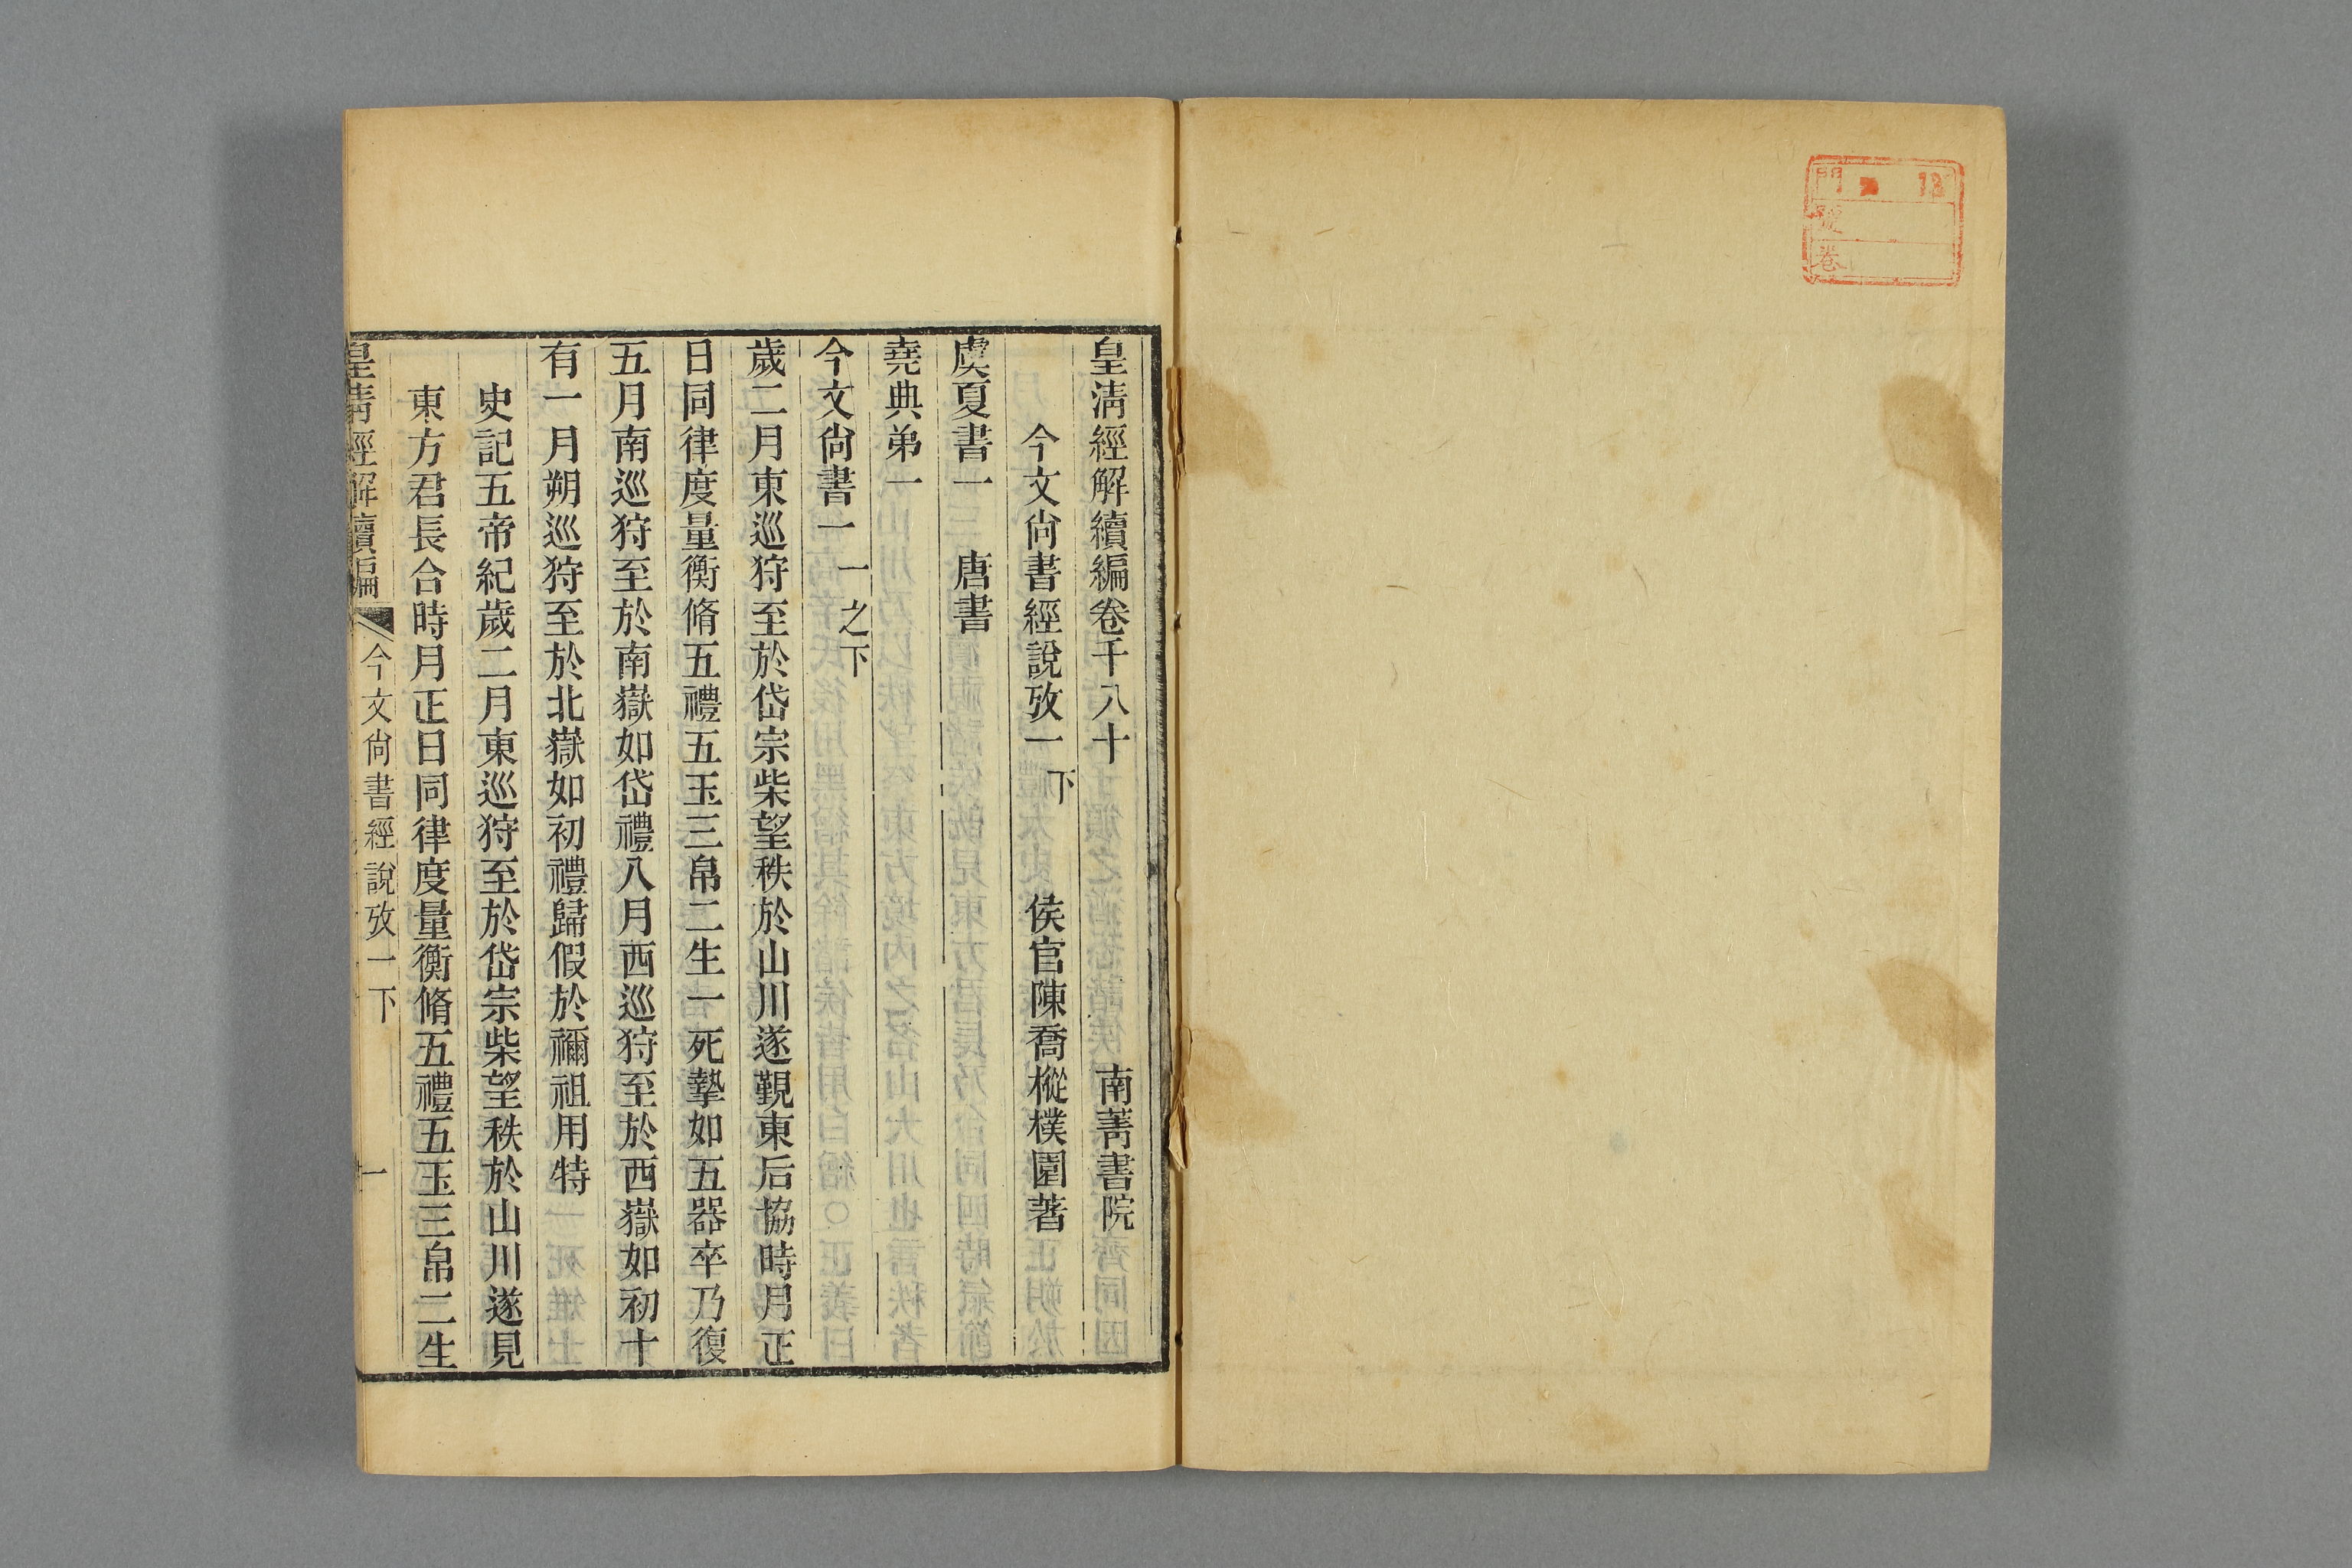 門 12
號
卷
皇淸經解續編卷千八十 南菁書院
今文尙書經說攷一下 侯官陳喬樅樸園著
虞夏書一 唐書
堯典弟一
今文尙書一 一之下
歲二月東巡狩至於岱宗柴望秩於山川遂覲東后協時月正
日同律度量衡脩五禮五玉三帛二生一死摯如五器卒乃復
五月南巡狩至於南嶽如岱禮八月西巡狩至於西嶽如初十
有一月朔巡狩至於北嶽如初禮歸假於禰祖用特
史記五帝紀歲二月東巡狩至於岱宗柴望秩於山川遂見
東方君長合時月正日同律度量衡脩五禮五玉三帛二生
皇淸經解續編 今文尙書經說攷一下 一